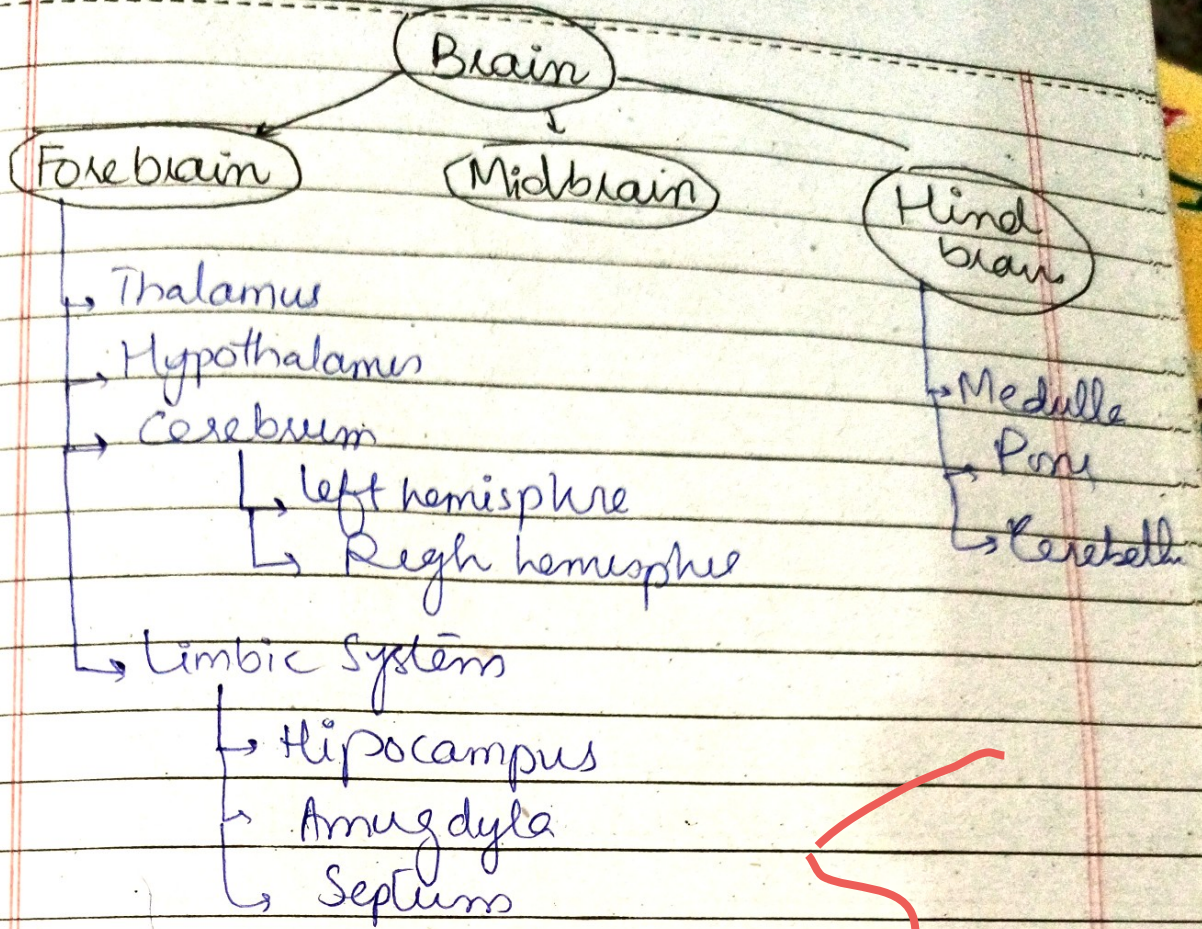 Brain
Forebrain
Midbrain
Hind
brain
Thalamus
Hypothalamus
Cerebrum
left hemisphre
Righ hemisphre
Limbic System
Hipocampus
Amugdyla
Septum
Medulla
Pons
Cerebellm